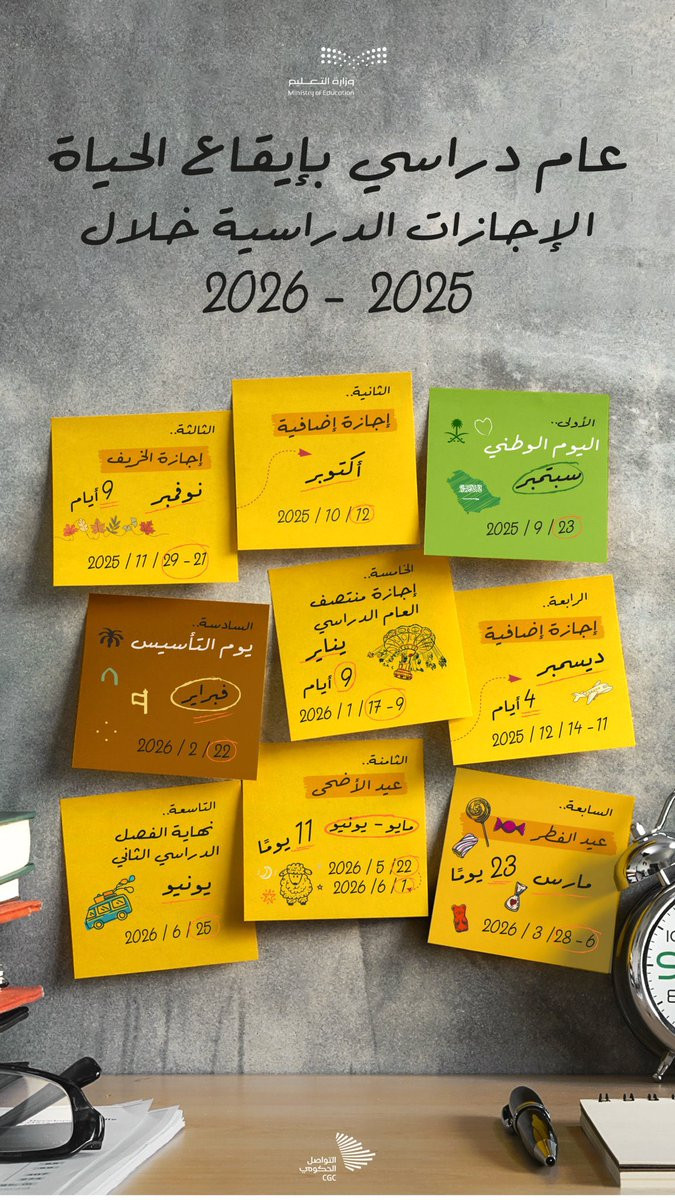 وزارة التعليم
Ministry of Education
عام دراسي بإيقاع الحياة
الإجازات الدراسية خلال
2025 - 2026
الأولى..
اليوم الوطني
سبتمبر
23 / 9 / 2025
الثانية..
إجازة إضافية
أكتوبر
12 / 10 / 2025
الثالثة..
إجازة الخريف
نوفمبر 9 أيام
21 - 29 / 11 / 2025
الرابعة..
إجازة إضافية
ديسمبر
4 أيام
11 - 14 / 12 / 2025
الخامسة..
إجازة منتصف
العام الدراسي
يناير
9 أيام
9 - 17 / 1 / 2026
السادسة..
يوم التأسيس
فبراير
22 / 2 / 2026
السابعة..
عيد الفطر
مارس 23 يومًا
6 - 28 / 3 / 2026
الثامنة..
عيد الأضحى
مايو - يونيو 11 يومًا
22 / 5 / 2026
1 / 6 / 2026
التاسعة..
نهاية الفصل
الدراسي الثاني
يونيو
25 / 6 / 2026
التواصل
الحكومي
CGC